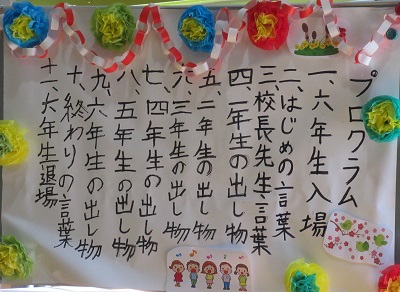 プログラム
一、六年生入場
二、はじめの言葉
三、校長先生言葉
四、一年生の出し物
五、二年生の出し物
六、三年生の出し物
七、四年生の出し物
八、五年生の出し物
九、六年生の出し物
十、終わりの言葉
十一、六年生退場